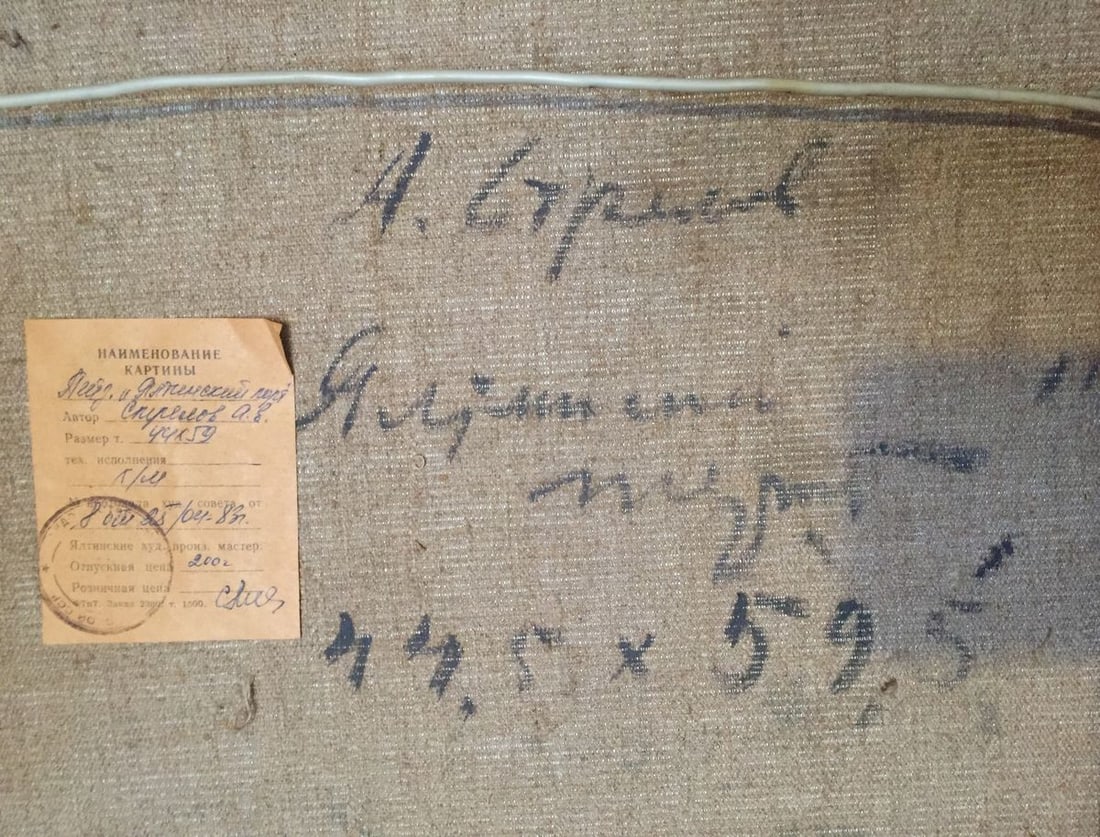 А. Стрелов
Ялтинский
порт
44,5 x 59,5
НАИМЕНОВАНИЕ
КАРТИНЫ
Пейз. "Ялтинский порт"
Автор Стрелов А.Е.
Размер т. 44х59
тех. исполнения
х/м
совета от
8 от 25/04-83г.
Ялтинские худ. произ. мастер.
Отпускная цена 200=
Розничная цена
т. 1000.